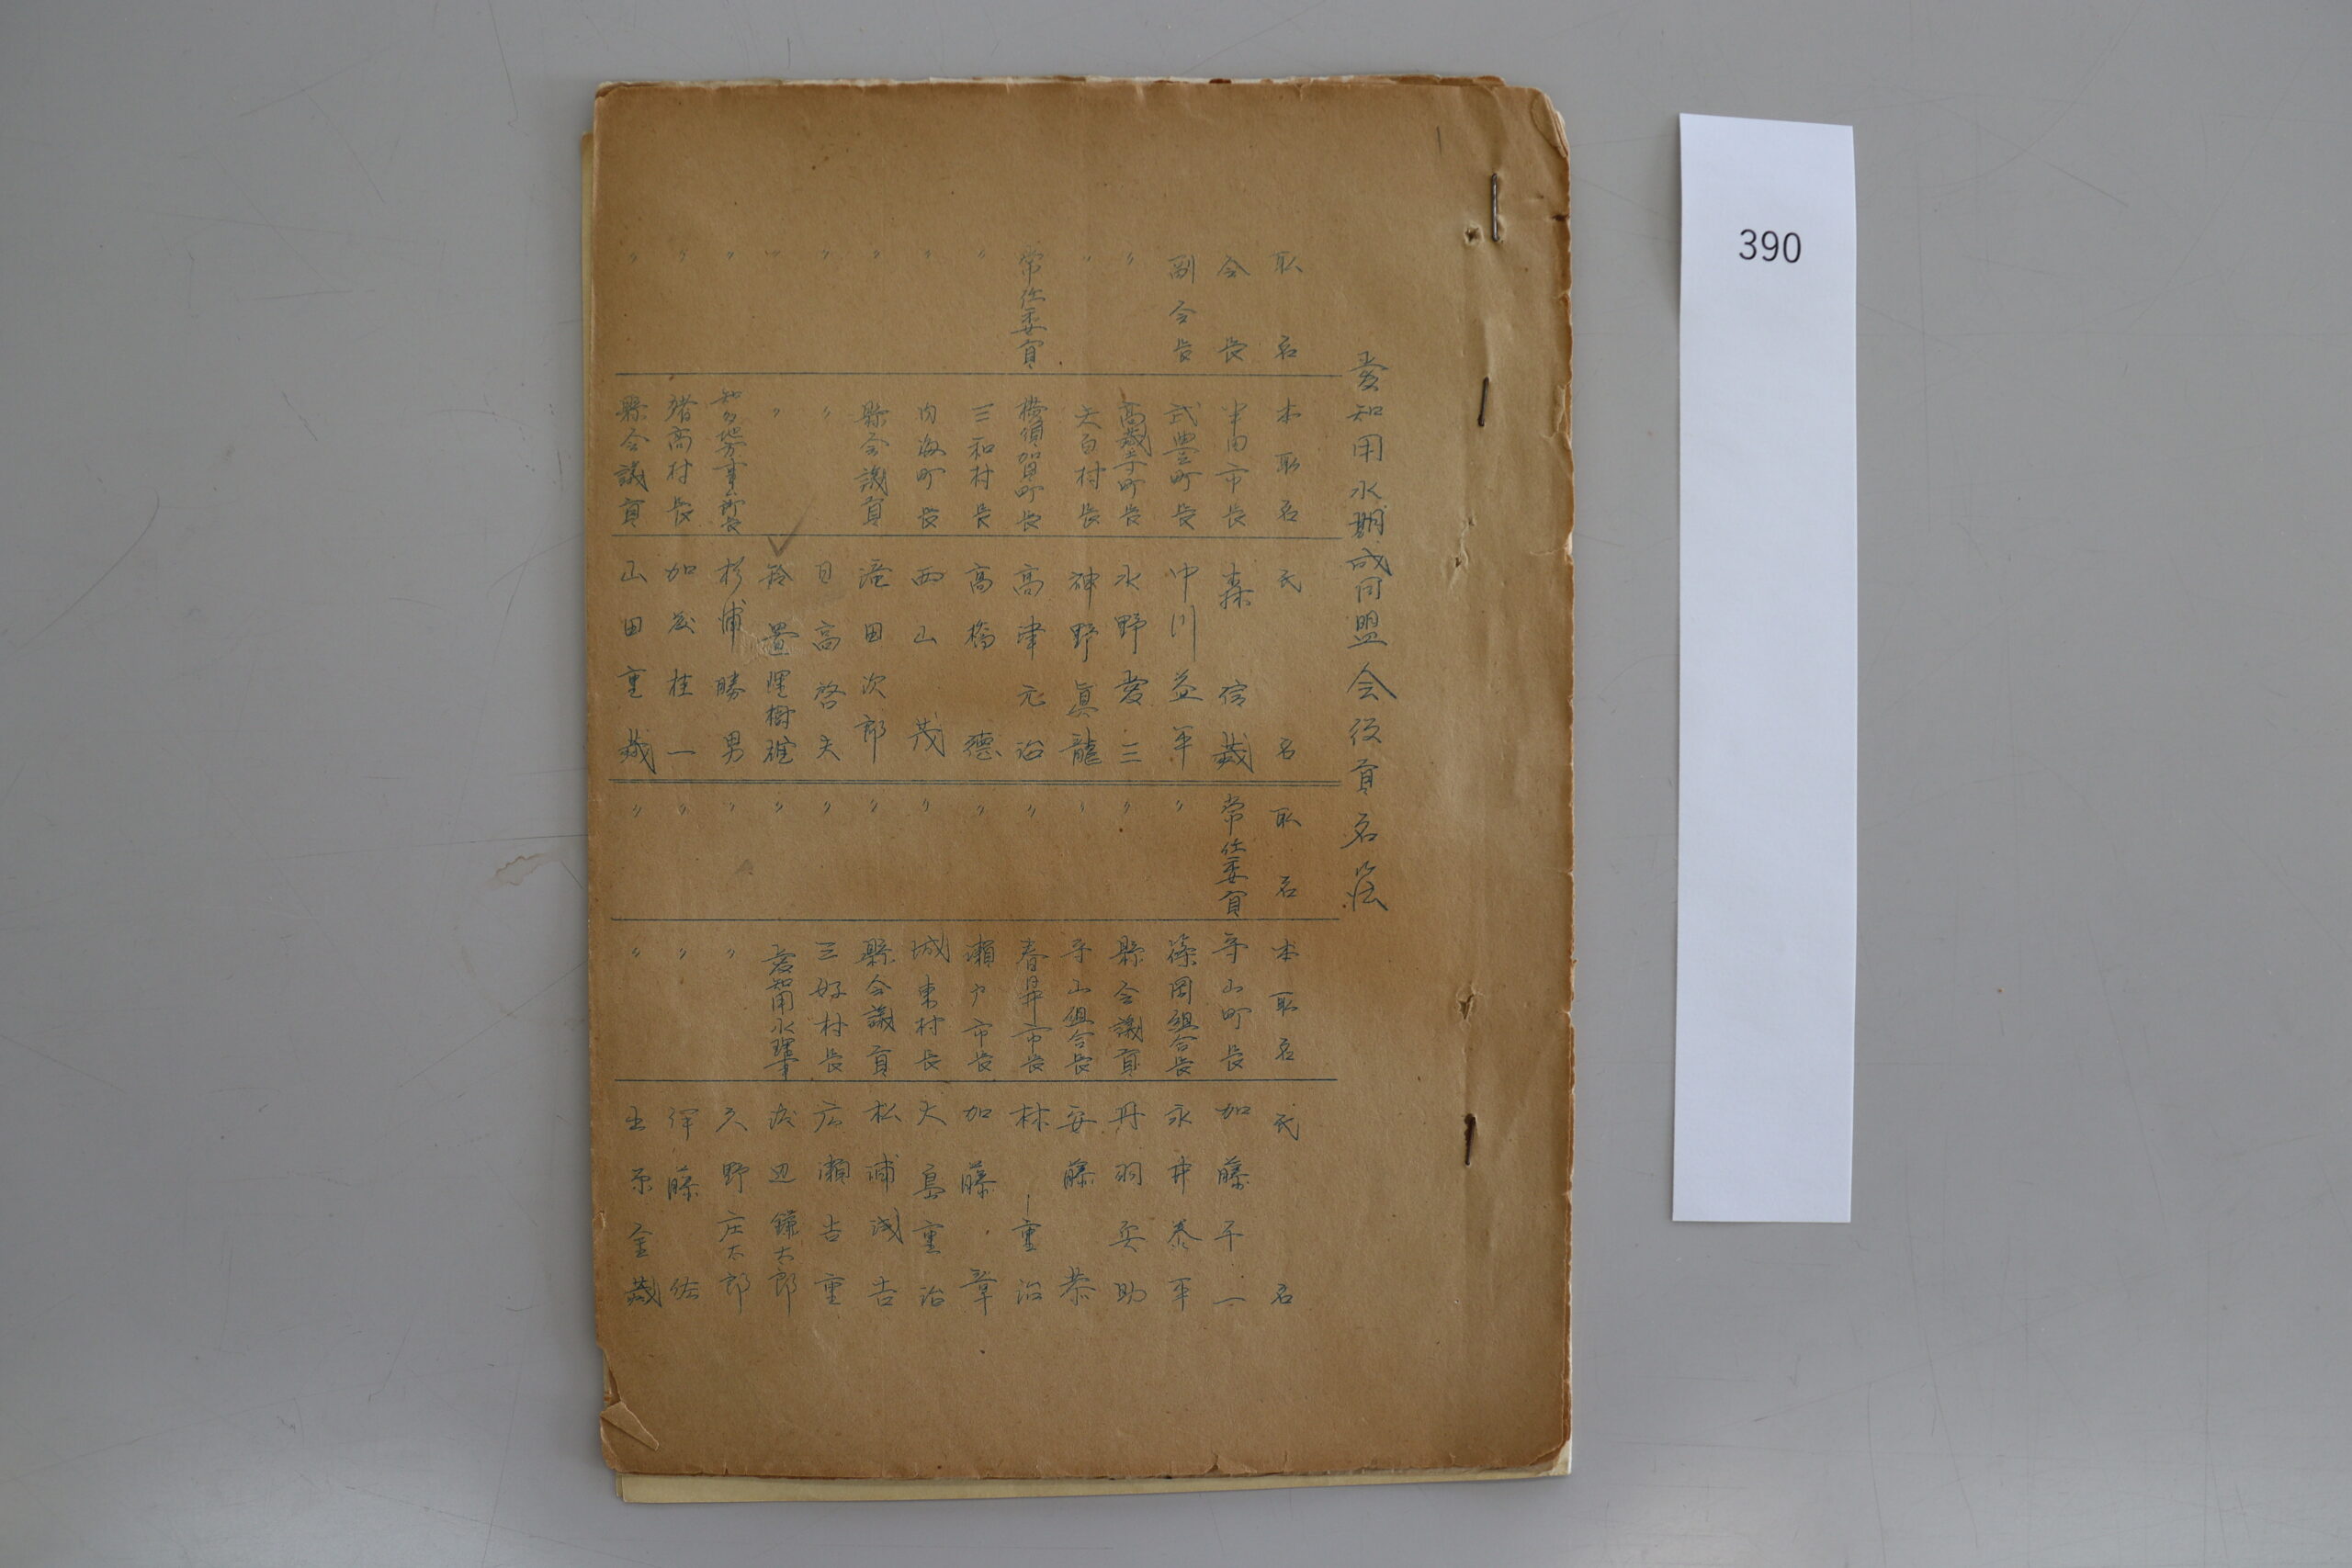 愛知用水期成同盟会役員名簿
职名 本职名 氏名
会長 半田市長 森信蔵
副会長 武豊町長 中川益平
〃 高蔵寺町長 水野愛三
〃 天白村長 神野眞龍
常任委員 横須賀町長 高津元治
〃 三和村長 高橋徳
〃 内海町長 西山茂
〃 縣会議員 滝田次郎
〃 〃 日高啓夫
〃 〃 鈴置
〃 知多地方事ム所長 杉浦勝男
〃 猪高村長 加茂桂一
〃 縣会議員 山田重蔵
职名 本职名 氏名
常任委員 守山町長 加藤千一
〃 篠岡組合長 永井泰平
〃 縣会議員 丹羽兵助
〃 守山組合長 安藤恭
〃 春日井市長 林重治
〃 瀬戸市長 加藤章
〃 城東村長 大島重治
〃 縣会議員 松浦浅吉
〃 三好村長 広瀬吉重
〃 愛知用水理事 渡辺鎌太郎
〃 〃 久野庄太郎
〃 〃 伊藤佐
〃 〃 原金蔵
390